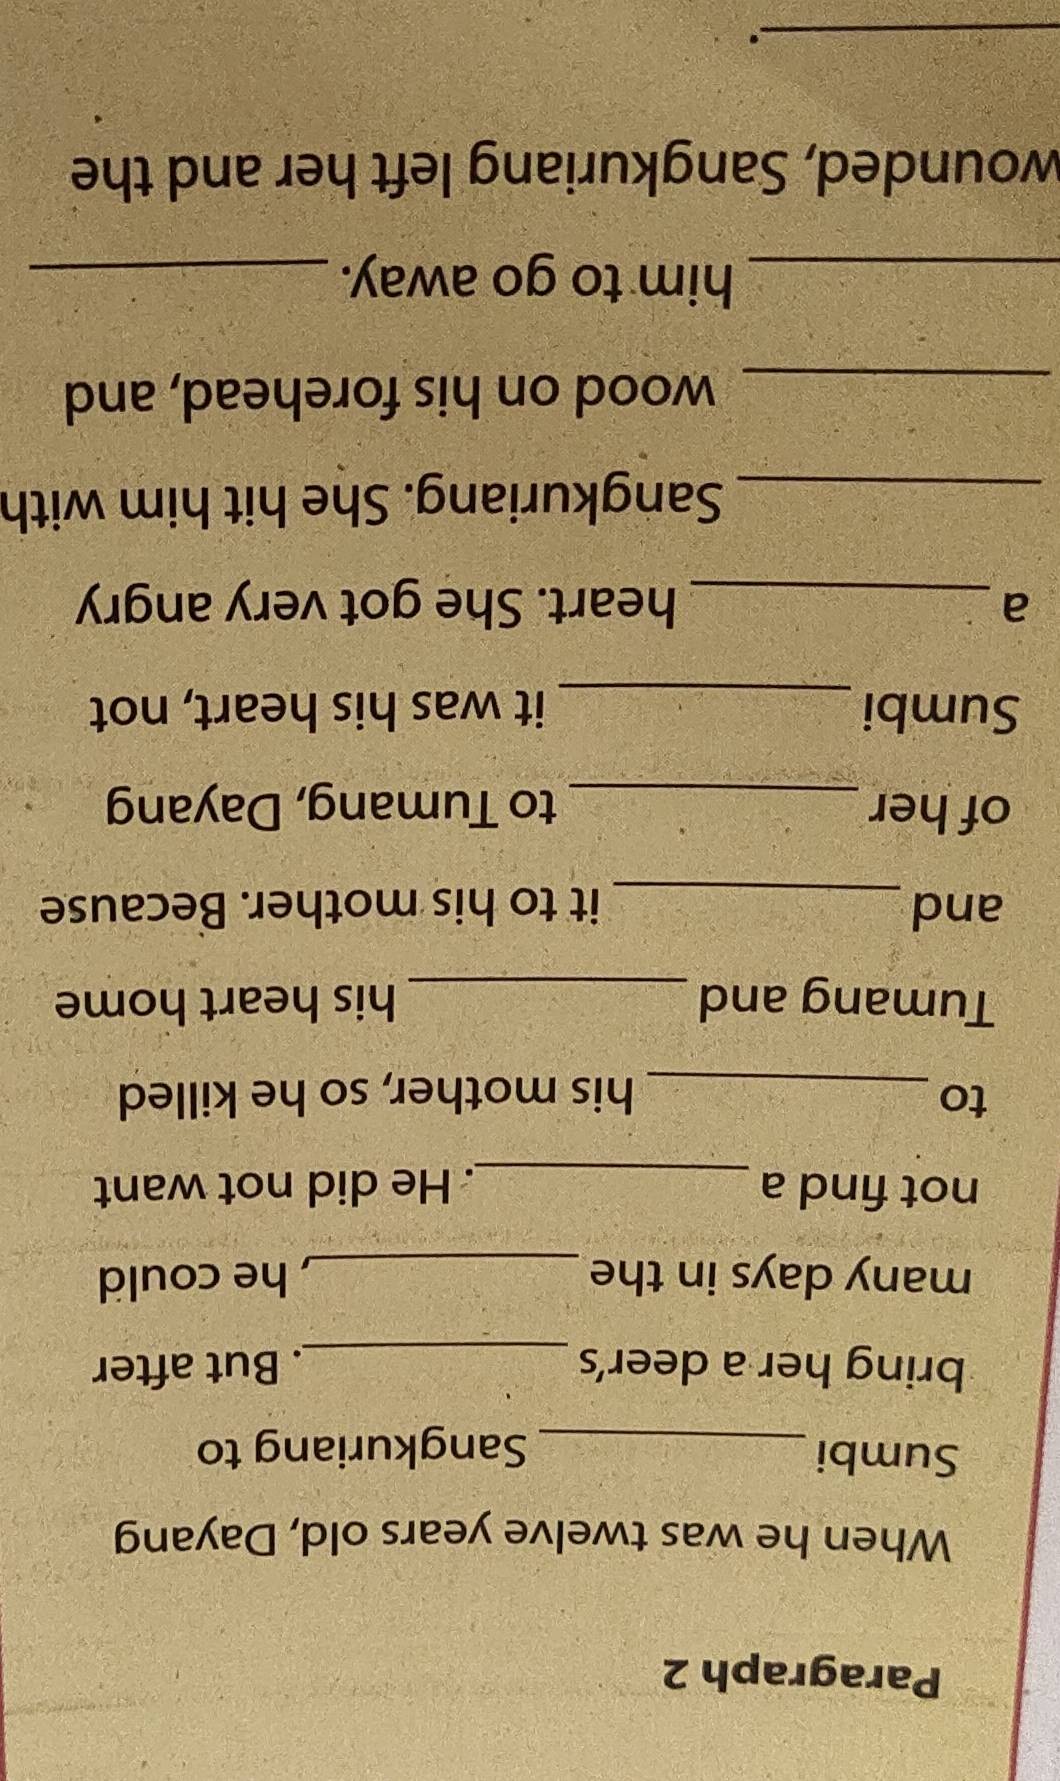 Paragraph 2
When he was twelve years old, Dayang
Sumbi __________ Sangkuriang to
bring her a deer's __________. But after
many days in the __________, he could
not find a __________. He did not want
to __________ his mother, so he killed
Tumang and __________ his heart home
and __________ it to his mother. Because
of her __________ to Tumang, Dayang
Sumbi __________ it was his heart, not
a __________ heart. She got very angry
__________ Sangkuriang. She hit him with
__________ wood on his forehead, and
__________ him to go away. __________
wounded, Sangkuriang left her and the
__________.